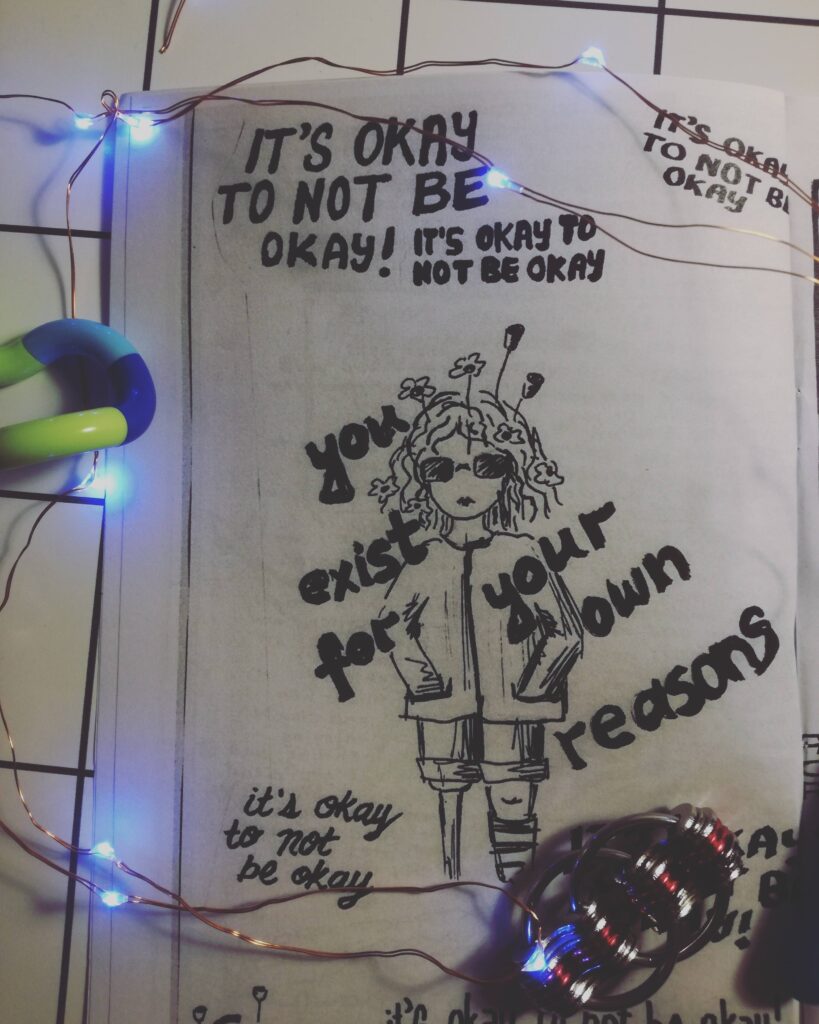 IT'S OKAY
TO NOT BE
OKAY!
IT'S OKAY TO
NOT BE OKAY
IT'S OKAY
TO NOT BE
OKAY
you
exist
for
your
own
reasons
it's okay
to not
be okay
it's okay to not be okay!